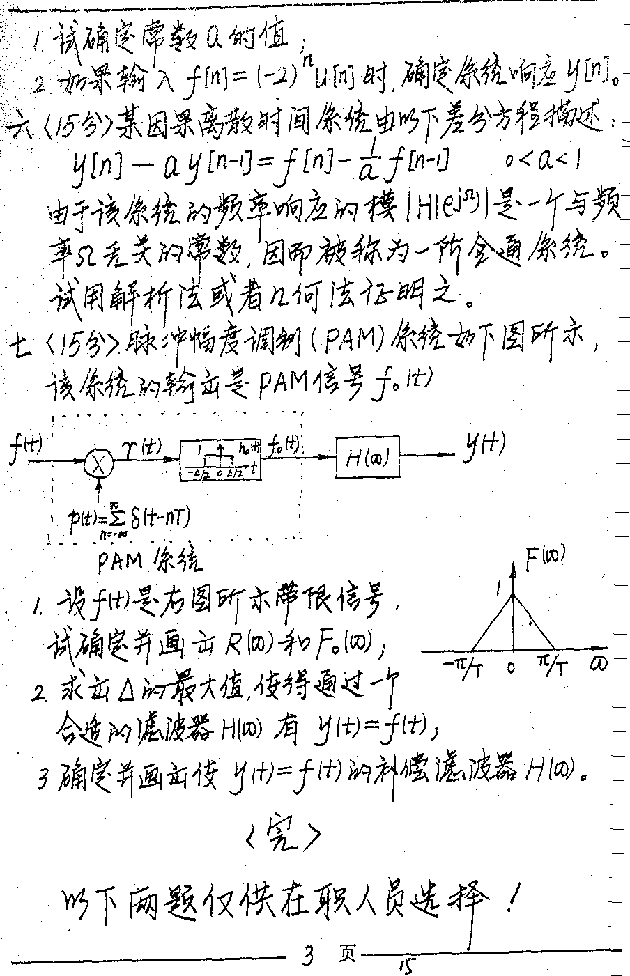 1. 试确定常数a的值;
2. 如果输入 f[n]=(-2)ⁿu[n]时,确定系统响应y[n]。
六 <15分>某因果离散时间系统由以下差分方程描述:
y[n]-ay[n-1]=f[n]-1/a f[n-1] 0<a<1
由于该系统的频率响应的模|H(e^jΩ)|是一个与频
率Ω无关的常数,因而被称为一阶全通系统。
试用解析法或者几何法证明之。
七 <15分>脉冲幅度调制(PAM)系统如下图所示,
该系统的输出是PAM信号f₀(t)
f(t) × r(t) 1 h₀(t) -Δ/2 0 Δ/2 t f₀(t) H(ω) y(t)
p(t)=∑δ(t-nT)
n=-∞
PAM系统
F(ω)
1
-π/T 0 π/T ω
1. 设f(t)是右图所示带限信号,
试确定并画出R(ω)和F₀(ω);
2. 求出Δ的最大值,使得通过一个
合适的滤波器H(ω)有y(t)=f(t);
3 确定并画出使y(t)=f(t)的补偿滤波器H(ω)。
<完>
以下两题仅供在职人员选择!
3 页
15